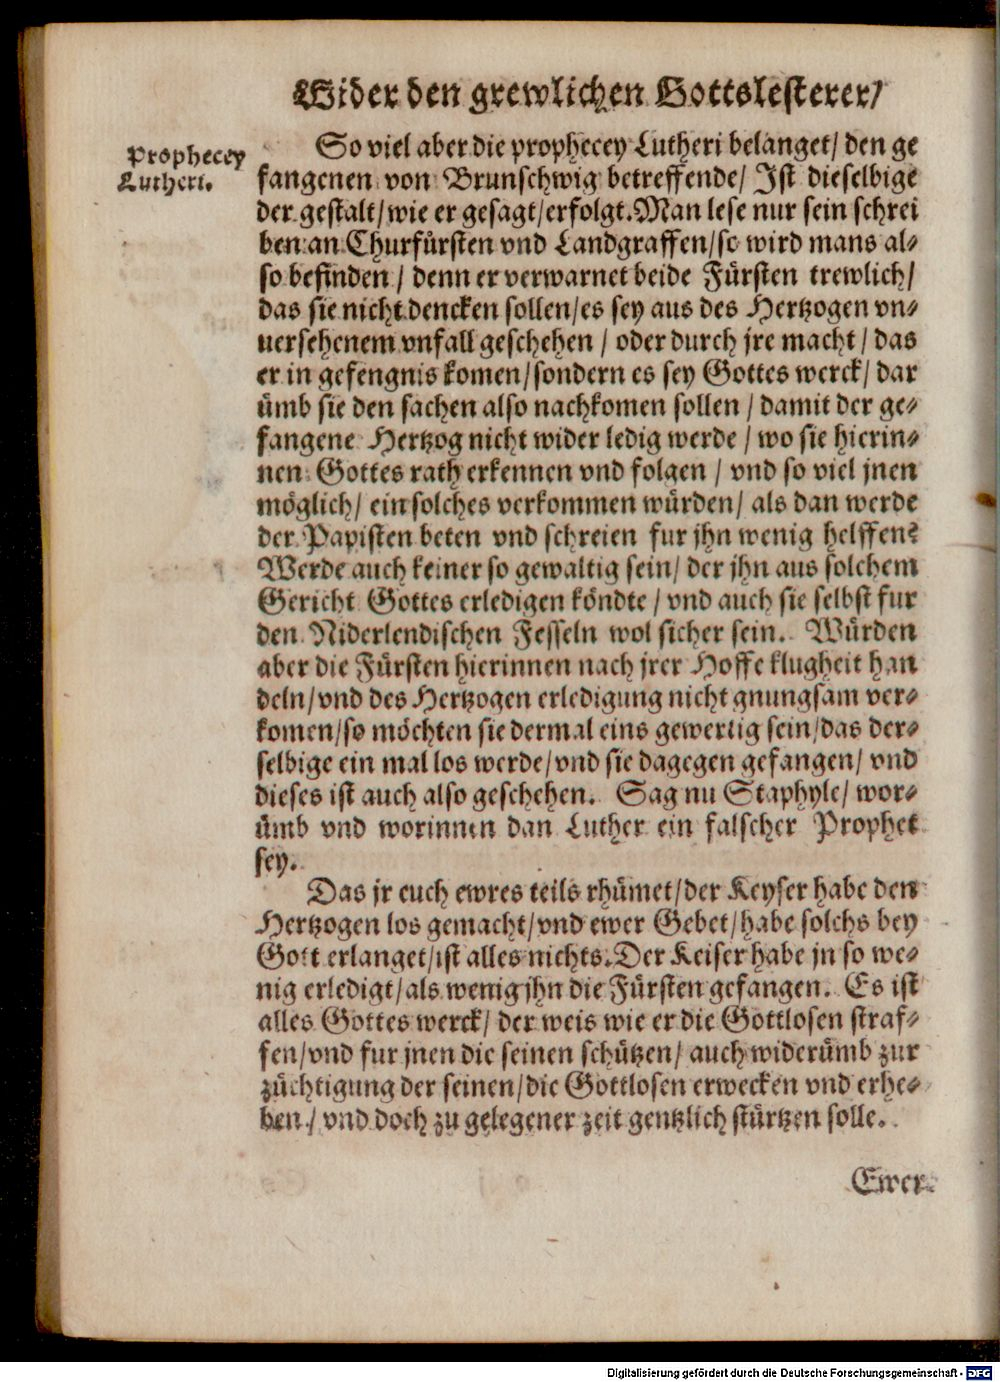 Wider den grewlichen Gottslesterer/
Prophecey
Lutheri.
So viel aber die prophecey Lutheri belanget/ den ge
fangenen von Brunschwig betreffende/ Ist dieselbige
der gestalt/ wie er gesagt/ erfolgt. Man lese nur sein schrei
ben an Churfürsten vnd Landgraffen/ so wird mans al-
so befinden / denn er verwarnet beide Fürsten trewlich/
das sie nicht dencken sollen/ es sey aus des Hertzogen vn-
uersehenem vnfall geschehen / oder durch jre macht / das
er in gefengnis komen/ sondern es sey Gottes werck/ dar
ümb sie den sachen also nachkomen sollen / damit der ge-
fangene Hertzog nicht wider ledig werde / wo sie hierin-
nen Gottes rath erkennen vnd folgen / vnd so viel jnen
möglich/ ein solches verkommen würden/ als dan werde
der Papisten beten vnd schreien fur jhn wenig helffen?
Werde auch keiner so gewaltig sein/ der jhn aus solchem
Gericht Gottes erledigen köndte / vnd auch sie selbst fur
den Niderlendischen Fesseln wol sicher sein. Würden
aber die Fürsten hierinnen nach jrer Hoffe klugheit han
deln/ vnd des Hertzogen erledigung nicht gnungsam ver-
komen/ so möchten sie dermal eins gewertig sein/ das der-
selbige ein mal los werde/ vnd sie dagegen gefangen/ vnd
dieses ist auch also geschehen. Sag nu Staphyle/ wor-
ümb vnd worinnen dan Luther ein falscher Prophet
sey.
Das jr euch ewres teils rhümet/ der Keyser habe den
Hertzogen los gemacht/ vnd ewer Gebet/ habe solchs bey
Gott erlanget/ ist alles nichts. Der Keiser habe jn so we-
nig erledigt/ als wenig jhn die Fürsten gefangen. Es ist
alles Gottes werck/ der weis wie er die Gottlosen straf-
fen/ vnd fur jnen die seinen schützen/ auch widerümb zur
züchtigung der seinen/ die Gottlosen erwecken vnd erhe-
ben / vnd doch zu gelegener zeit gentzlich stürtzen solle.
Ewer
Digitalisierung gefördert durch die Deutsche Forschungsgemeinschaft - DFG